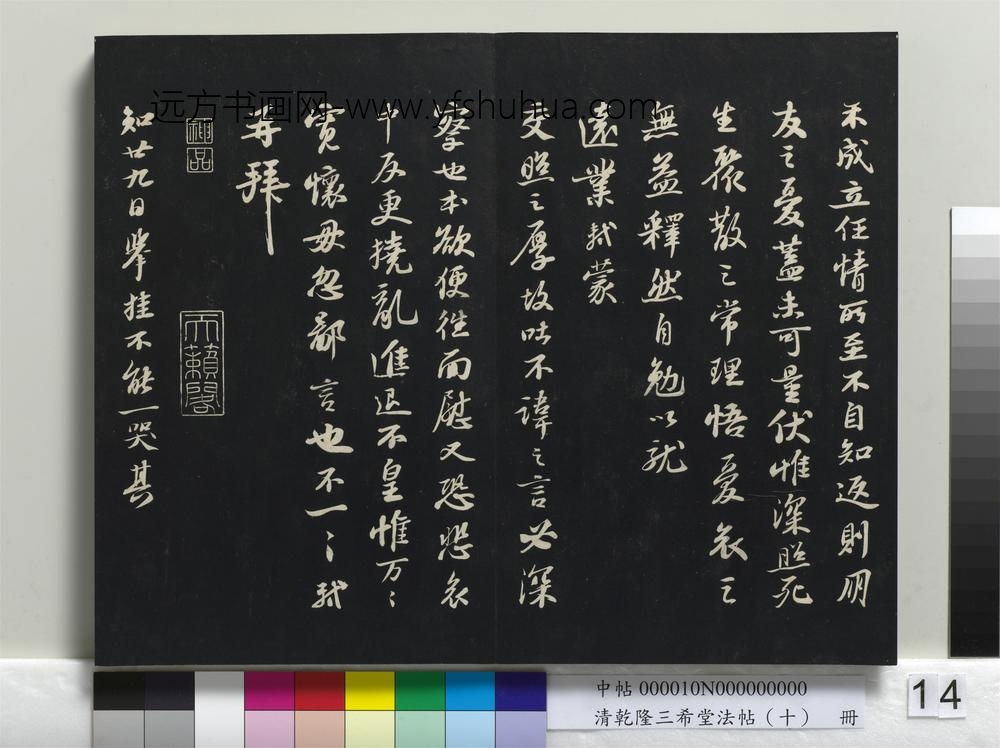 不成立任情所至不自知返則朋
友之憂蓋未可量伏惟深照死
生聚散之常理悟憂哀之
無益釋然自勉以就
遠業軾蒙
交照之厚故吐不諱之言必深
察也本欲便往面慰又恐悲哀
中反更撓亂進退不皇惟万〻
寬懷毋忽鄙言也不一〻軾
再拜
天籟閣
知廿九日舉挂不能一哭其
远方书画网-www.yfshuhua.com
中帖 000010N000000000
清乾隆三希堂法帖（十） 冊
14